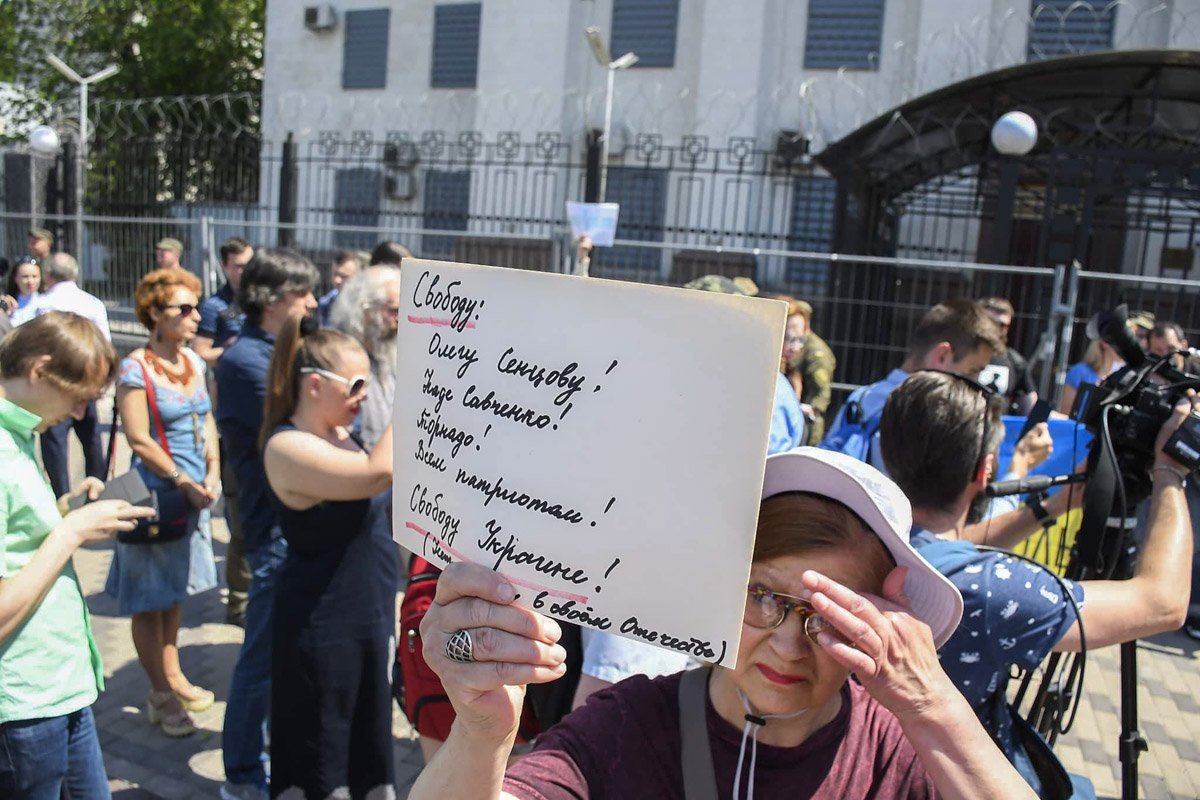 Свободу:
Олегу Сенцову!
Наде Савченко!
Торнадо!
Всем патриотам!
Свободу Украине!
( в своём Отечестве)